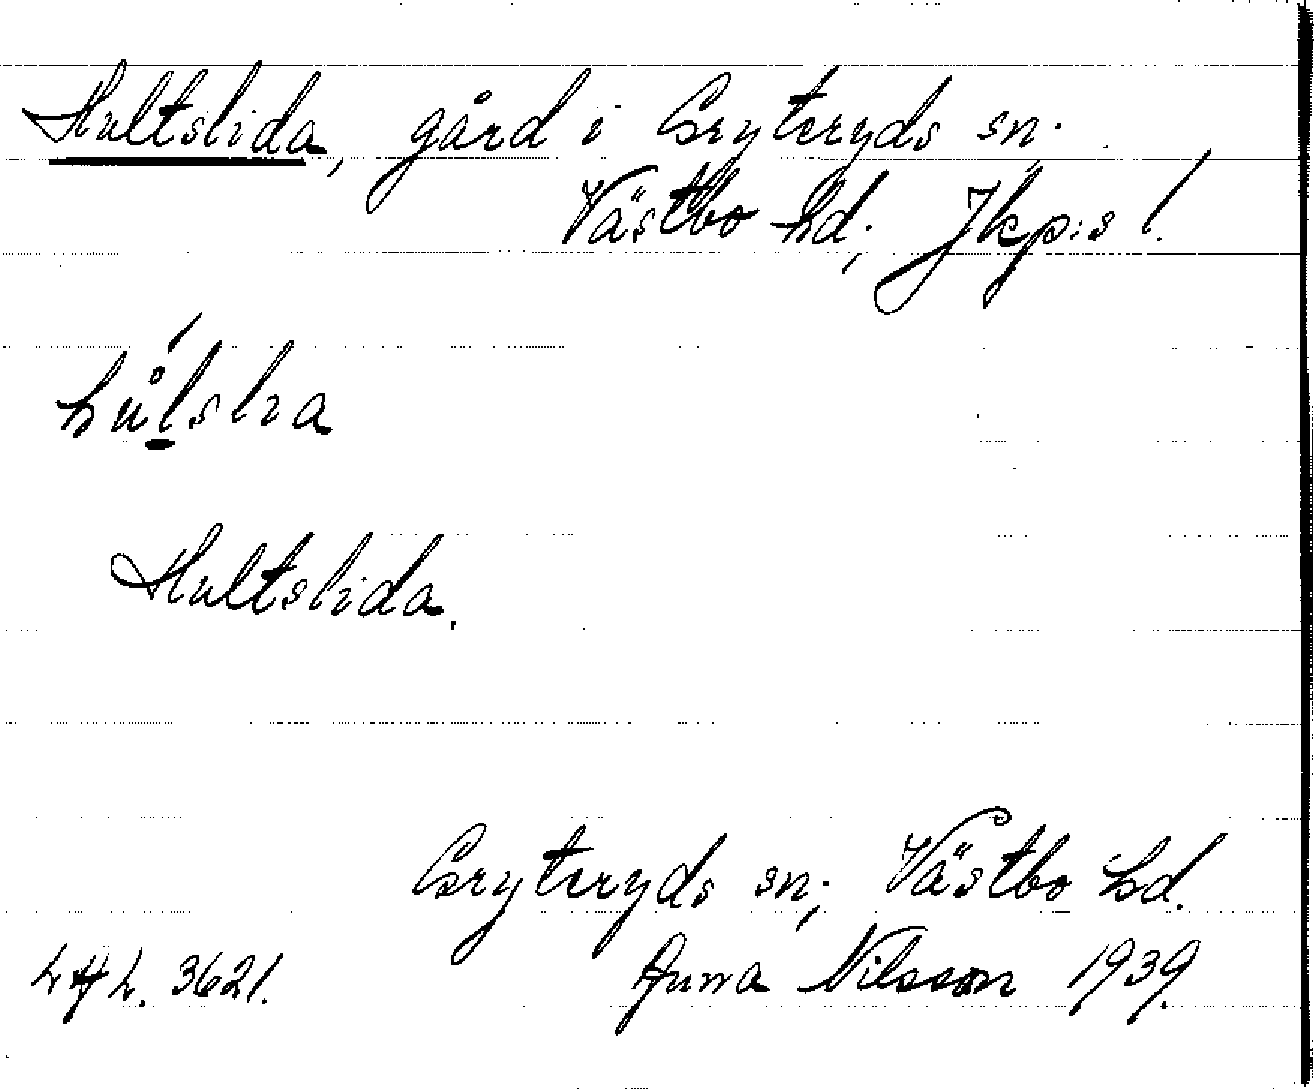 Hultslida, gård i Gryteryds sn.
Västbo hd; Jkp:s l.
Hultslida.
Gryteryds sn; Västbo hd.
3621. Anna Nilsson 1939.